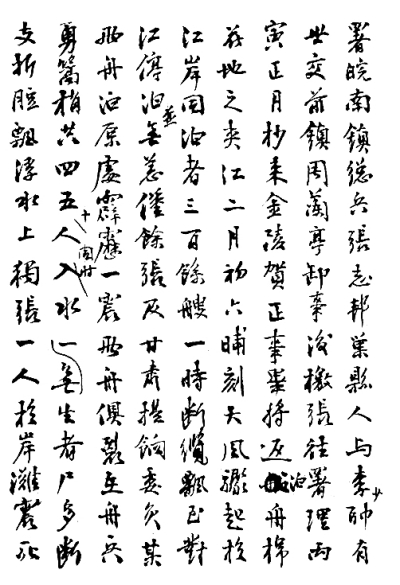 署皖南鎮總兵張志邦巢縣人与李少帥有
世交前鎮周蘭亭卸事後檄張往署理丙
寅正月杪来金陵賀正事畢將返泊舟棉
花地之夹江二月初六晡刻大風驟起於
江岸同泊者三百餘艘一時断纜飄至對
江停泊並無恙僅餘張及甘肃提餉委员某
两舟泊原處霹靂一震两舟俱裂至舟兵
勇篙梢共四五十人入水一無生者尸多断
支折脰飄浮水上獨張一人於岸灘震死